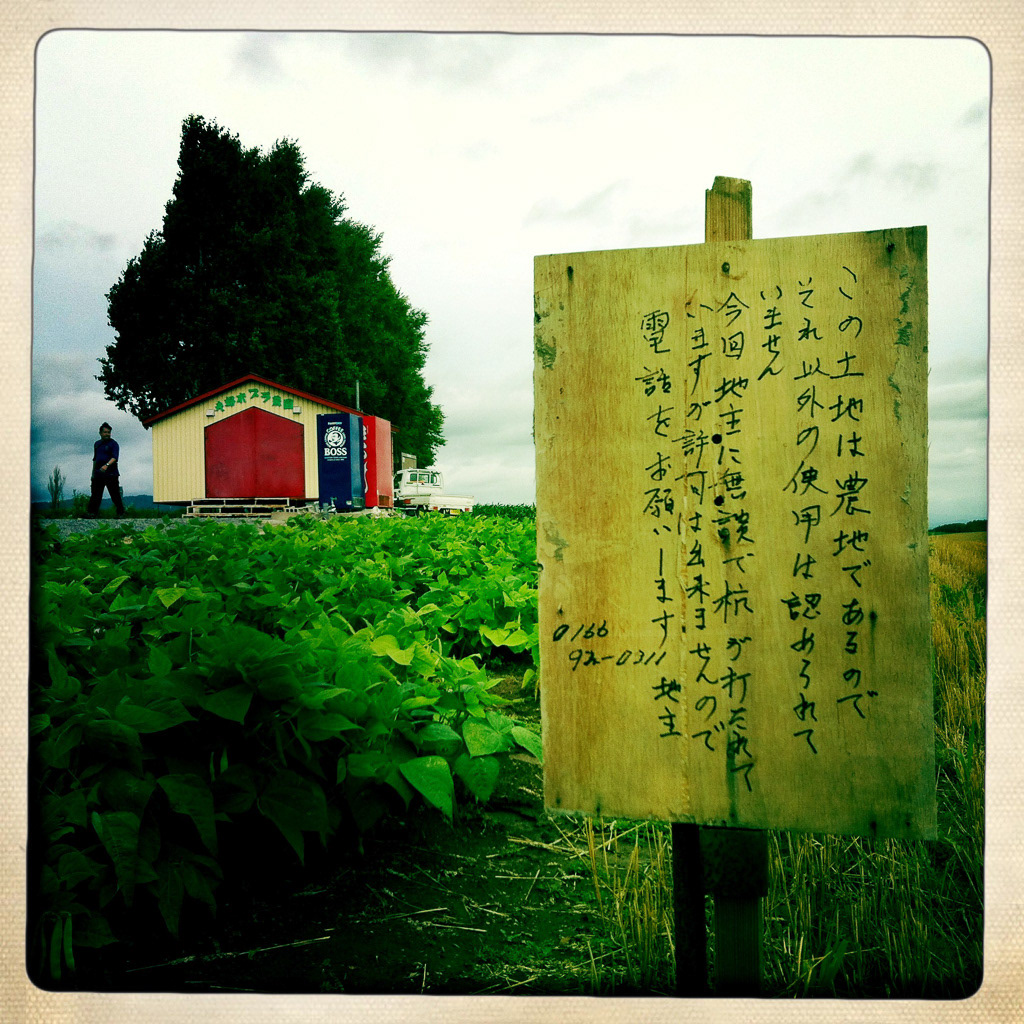 この土地は農地であるので
それ以外の使用は認められて
いません
今回地主に無談で杭が打たれて
いますが許可は出来ませんので
電話をお願いします 地主
0166
92-0311
COFFEE
BOSS